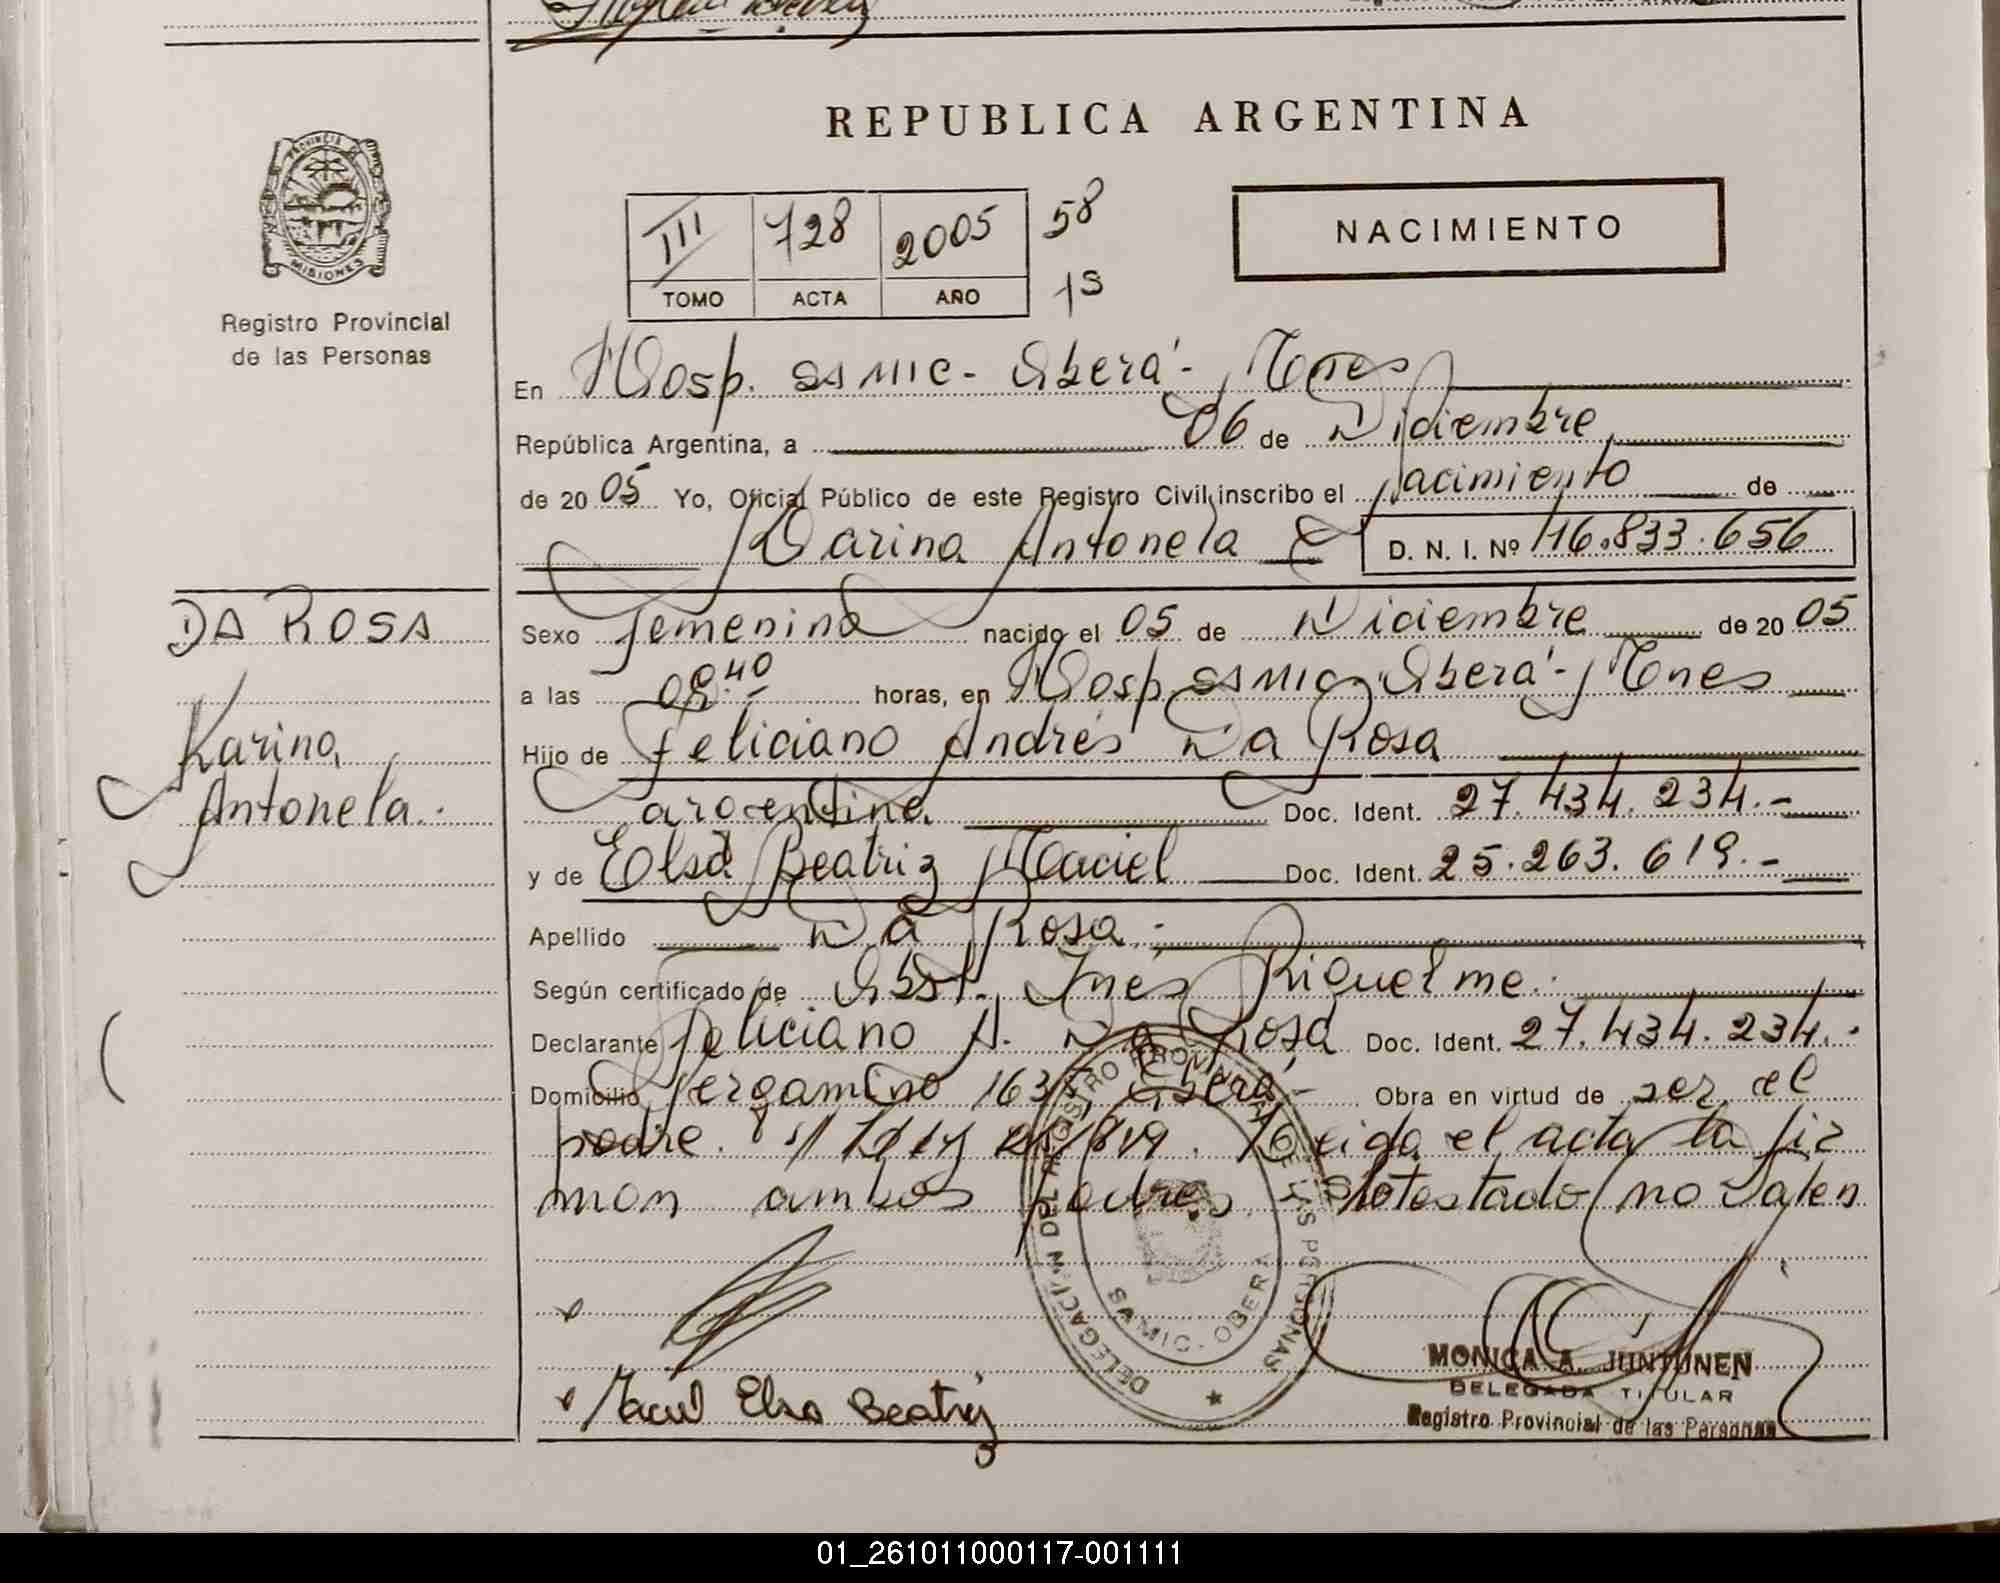 REPUBLICA ARGENTINA
PROVINCIA DE
MISIONES
Registro Provincial
de las Personas
III 728 2005 58
TOMO ACTA AÑO 1S
NACIMIENTO
En Hosp. SAMIC - Oberá - Mnes
República Argentina, a 06 de Diciembre
de 20 05 Yo, Oficial Público de este Registro Civil inscribo el Nacimiento de
Karina Antonela D. N. I. Nº 46.833.656
DA ROSA
Karina
Antonela.
Sexo femenino nacido el 05 de Diciembre de 20 05
a las 08.40 horas, en Hosp. SAMIC - Oberá - Mnes
Hijo de Feliciano Andrés Da Rosa
argentina Doc. Ident. 27.434.234.-
y de Elsa Beatriz Maciel Doc. Ident. 25.263.619.-
Apellido Da Rosa.-
Según certificado de Obst. Inés Riquelme.
Declarante Feliciano A. Da Rosa Doc. Ident. 27.434.234.-
Domicilio Pergamino 163 Oberá - Obra en virtud de ser el
padre. Leida el acta la fir
man ambos padres. testado no valen
DELEGACION DEL REGISTRO PROVINCIAL DE LAS PERSONAS
SAMIC - OBERA
Maciel Elsa Beatriz
MONICA A. JUNTUNEN
DELEGADA TITULAR
Registro Provincial de las Personas
01_261011000117-001111